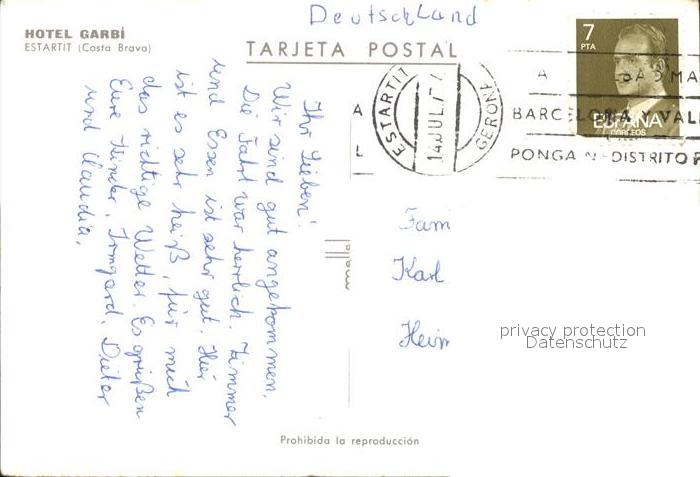 HOTEL GARBÍ
ESTARTIT (Costa Brava)
Deutschland
TARJETA POSTAL
7
PTA
ESPAÑA
CORREOS
ESTARTIT
14 JUL 77
GERONA
A
BARCELONA
VAL
L
PONGA N DISTRITO P
Ihr Lieben!
Wir sind gut angekommen.
Die Fahrt war herrlich. Zimmer
und Essen ist sehr gut. Hier
ist es sehr heiß, für mich
das richtige Wetter. Es grüßen
Eure Kinder, Irmgard, Dieter
und Claudia.
Fam
Karl
Heim
privacy protection
Datenschutz
Prohibida la reproducción